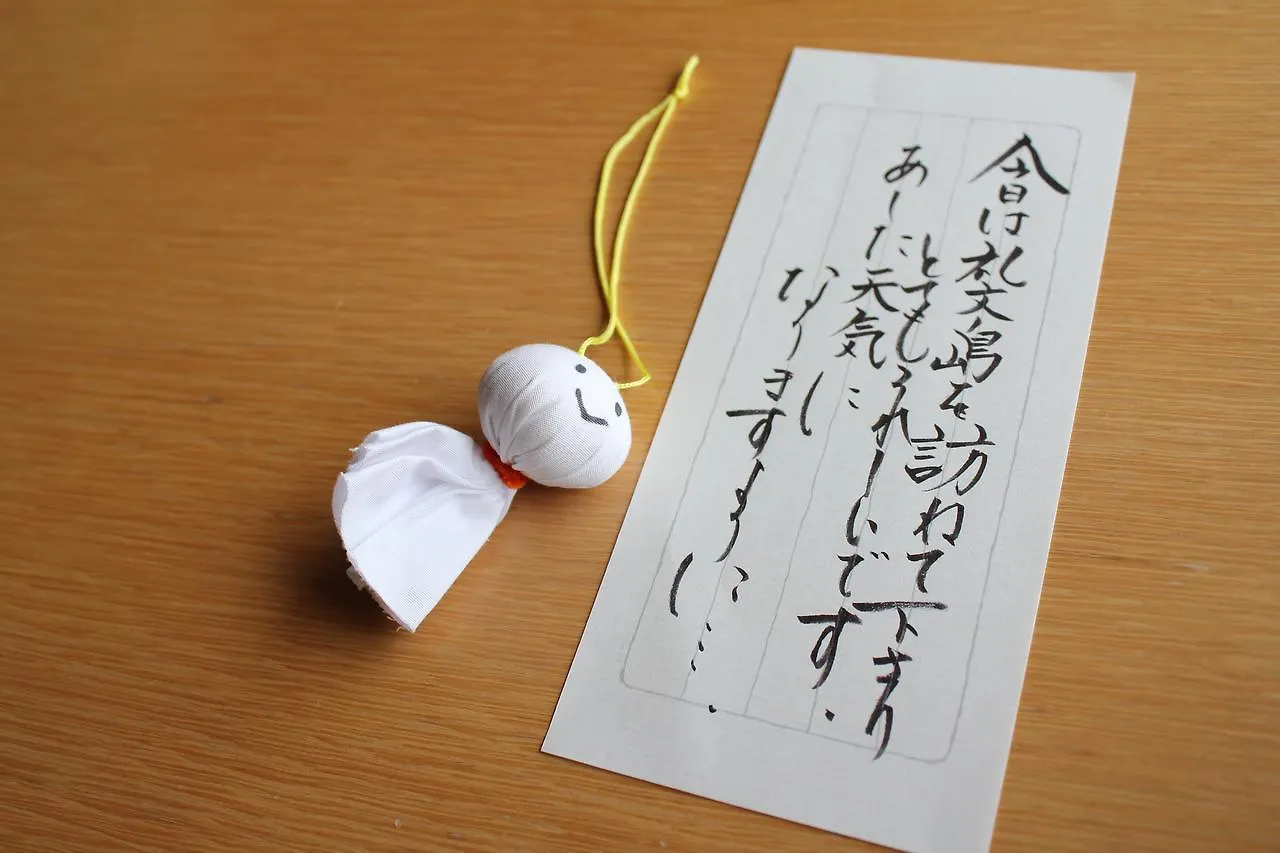 今日は礼文島を訪ねて下さり
とてもうれしいです.
あした天気に
なりますように….